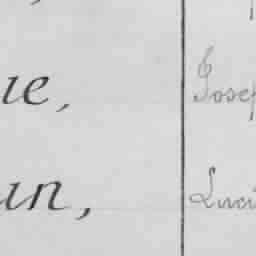 ue, Josep
un, Luci